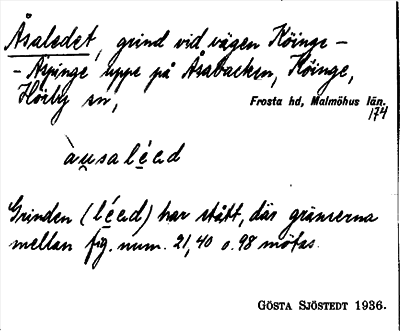 Åsaledet, grind vid vägen Köinge –
– Äspinge uppe på Åsabacken, Köinge,
Hörby sn,
Frosta hd, Malmöhus län.
174
àu̯saléad
Grinden (léad) har stått, där gränserna
mellan fig. num. 21, 40 o. 98 mötas.
GÖSTA SJÖSTEDT 1936.